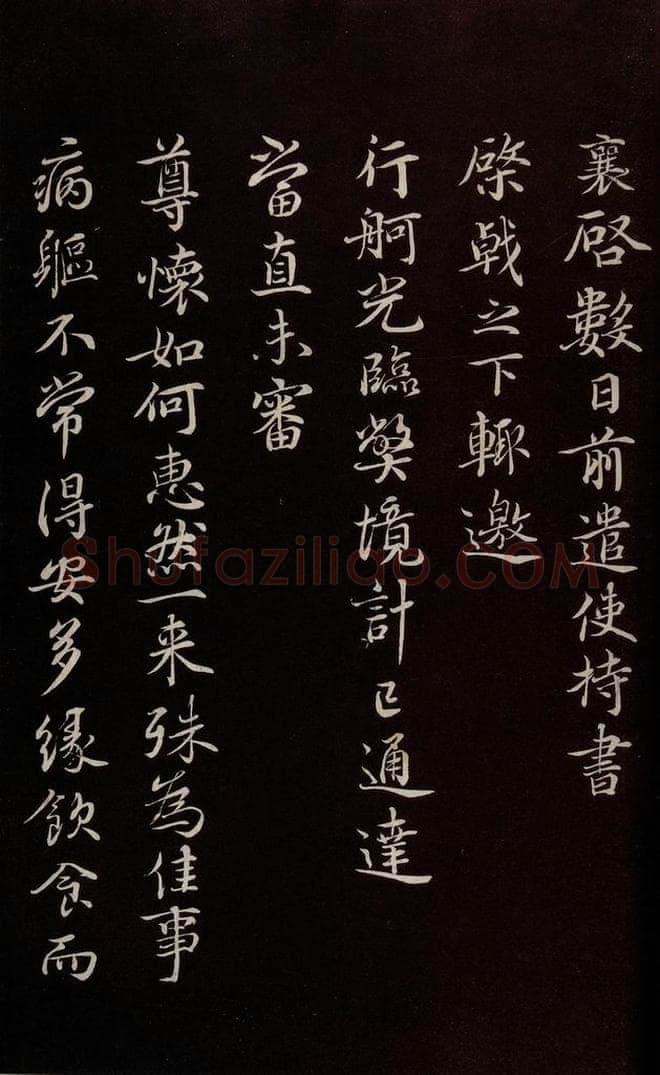 襄啓數日前遣使持書
棨戟之下輙邀
行舸光臨弊境計已通達
當直未審
尊懷如何惠然一来殊為佳事
病軀不常得安多緣飲食而
Shufaziliao.COM